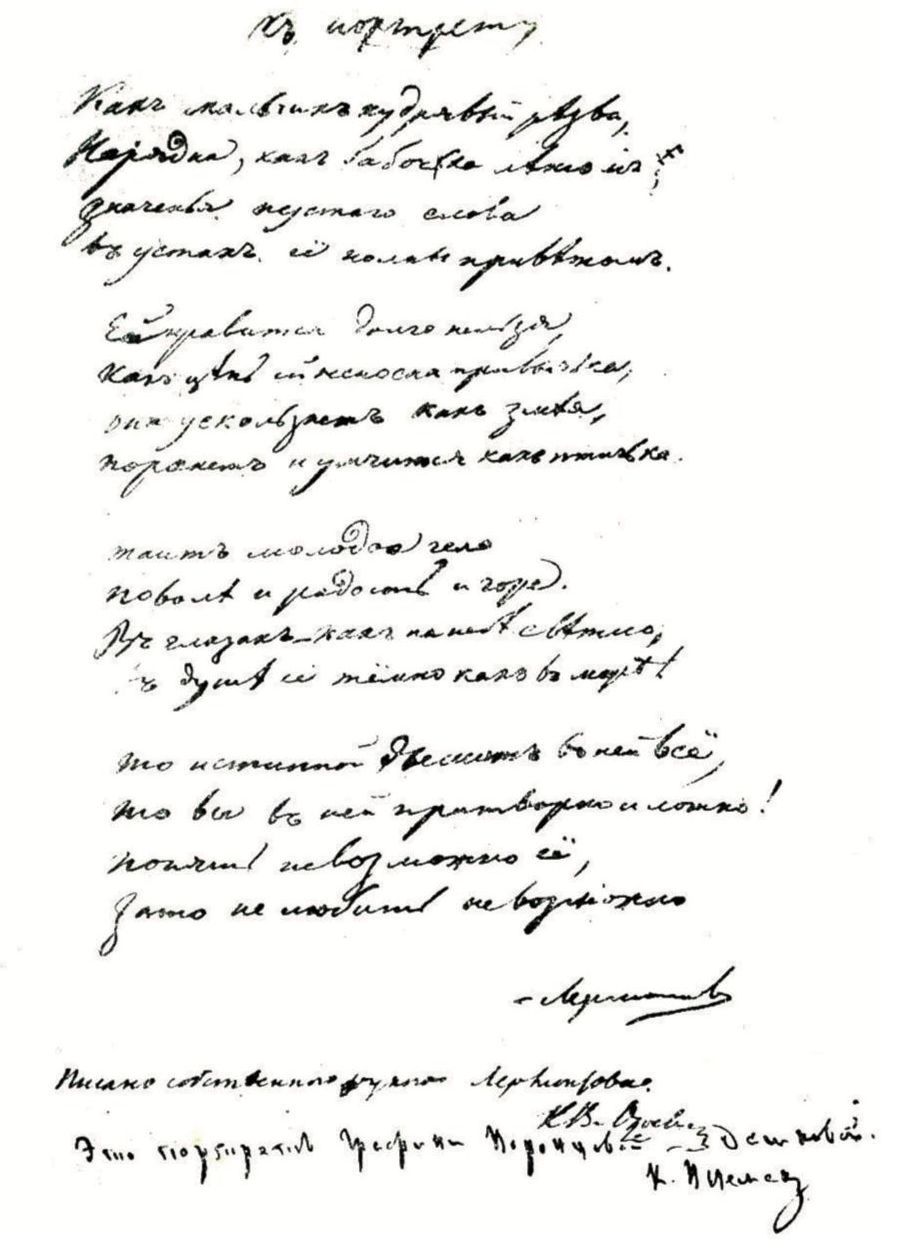 Къ портрету
Какъ мальчикъ кудрявый рѣзва,
Нарядна, какъ бабочка лѣтомъ;
Значенья пустаго слова
въ устахъ её полны привѣтомъ.
Ей нравиться долго нельзя,
какъ цѣпь ей несносна привычка,
она ускользнетъ какъ змѣя,
порхнетъ и умчится какъ птичка.
таитъ молодое чело
по волѣ и радость и горе.
Въ глазахъ какъ на небѣ свѣтло,
Въ душѣ её тёмно какъ въ морѣ!
то истиной дышитъ въ ней всё,
то все въ ней притворно и ложно!
понять невозможно её,
зато не любить невозможно
Лермонтовъ
Писано собственною рукою Лермонтова.
К. В.
Это портретъ Графини Воронцовой-Дашковой.
К.